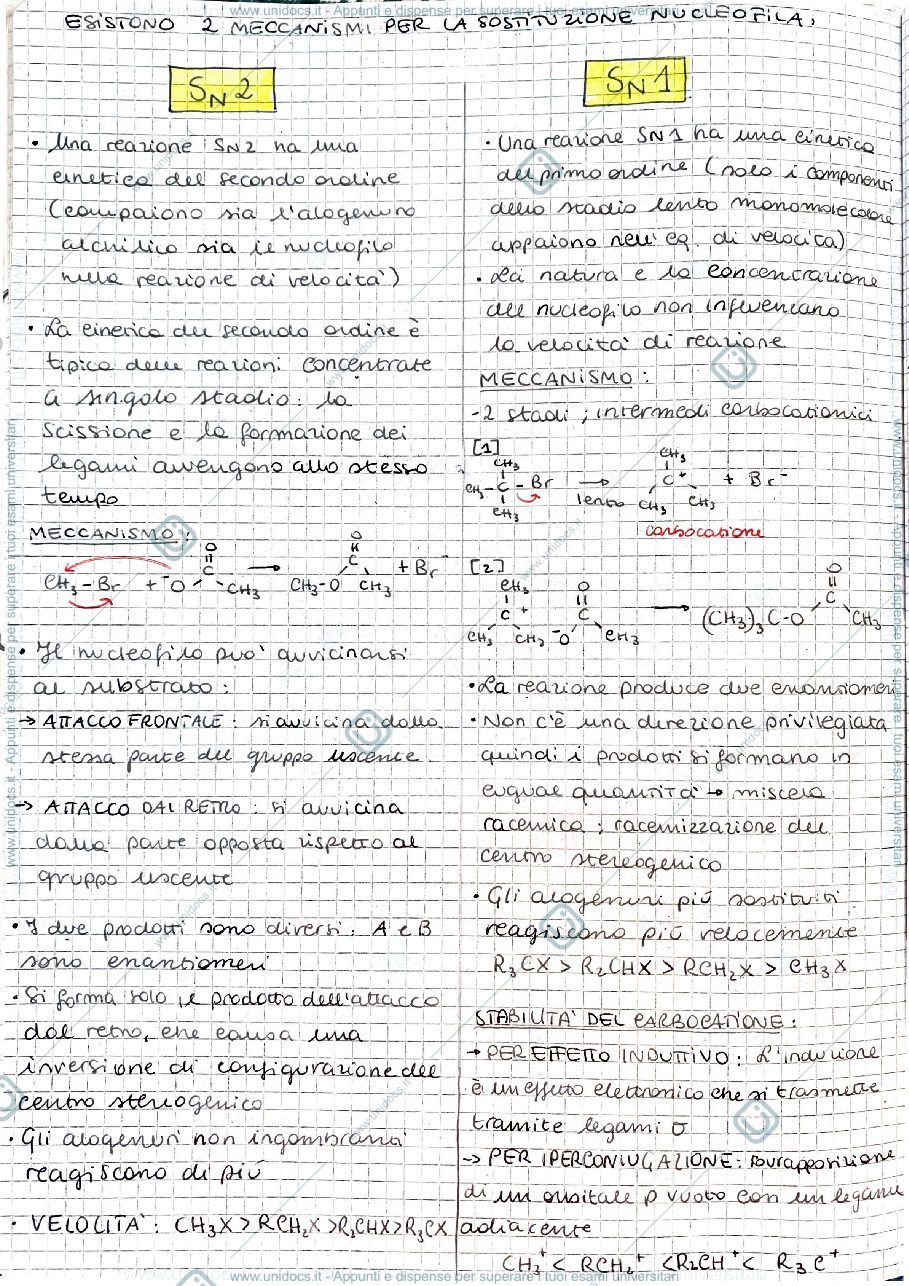 www.unidocs.it - Appunti e dispense per superare i tuoi esami universitari
ESISTONO 2 MECCANISMI PER LA SOSTITUZIONE NUCLEOFILA:
SN2
• Una reazione SN2 ha una
cinetica del secondo ordine
(compaiono sia l'alogenuro
alchilico sia il nucleofilo
nella reazione di velocità)
• La cinetica del secondo ordine è
tipica delle reazioni concentrate
a singolo stadio: la
scissione e la formazione dei
legami avvengono allo stesso
tempo
MECCANISMO:
CH3-Br + -O C O CH3 → CH3-O C O CH3 + Br-
• Il nucleofilo può avvicinarsi
al substrato:
→ ATTACCO FRONTALE: si avvicina dalla
stessa parte del gruppo uscente
→ ATTACCO DAL RETRO: si avvicina
dalla parte opposta rispetto al
gruppo uscente
• I due prodotti sono diversi: A e B
sono enantiomeri
• Si forma solo il prodotto dell'attacco
dal retro, che causa una
inversione di configurazione del
centro stereogenico
• Gli alogenuri non ingombranti
reagiscono di più
• VELOCITÀ: CH3X > RCH2X > R2CHX > R3CX
SN1
• Una reazione SN1 ha una cinetica
del primo ordine (solo i componenti
dello stadio lento monomolecolare
appaiono nell'eq. di velocità)
• La natura e la concentrazione
del nucleofilo non influenzano
la velocità di reazione
MECCANISMO:
-2 stadi; intermedi carbocationici
[1]
CH3
CH3-C-Br → lento C+ CH3 CH3 CH3 + Br-
CH3
carbocatione
[2]
CH3
C+ CH3 CH3 -O C O CH3 → (CH3)3C-O C O CH3
• La reazione produce due enantiomeri
• Non c'è una direzione privilegiata
quindi i prodotti si formano in
egual quantità → miscela
racemica; racemizzazione del
centro stereogenico
• Gli alogenuri più sostituiti
reagiscono più velocemente
R3CX > R2CHX > RCH2X > CH3X
STABILITÀ DEL CARBOCATIONE:
→ PER EFFETTO INDUTTIVO: L'induzione
è un effetto elettronico che si trasmette
tramite legami σ
→ PER IPERCONIUGAZIONE: sovrapposizione
di un orbitale p vuoto con un legame
adiacente
CH3+ < RCH2+ < R2CH+ < R3C+
www.unidocs.it - Appunti e dispense per superare i tuoi esami universitari